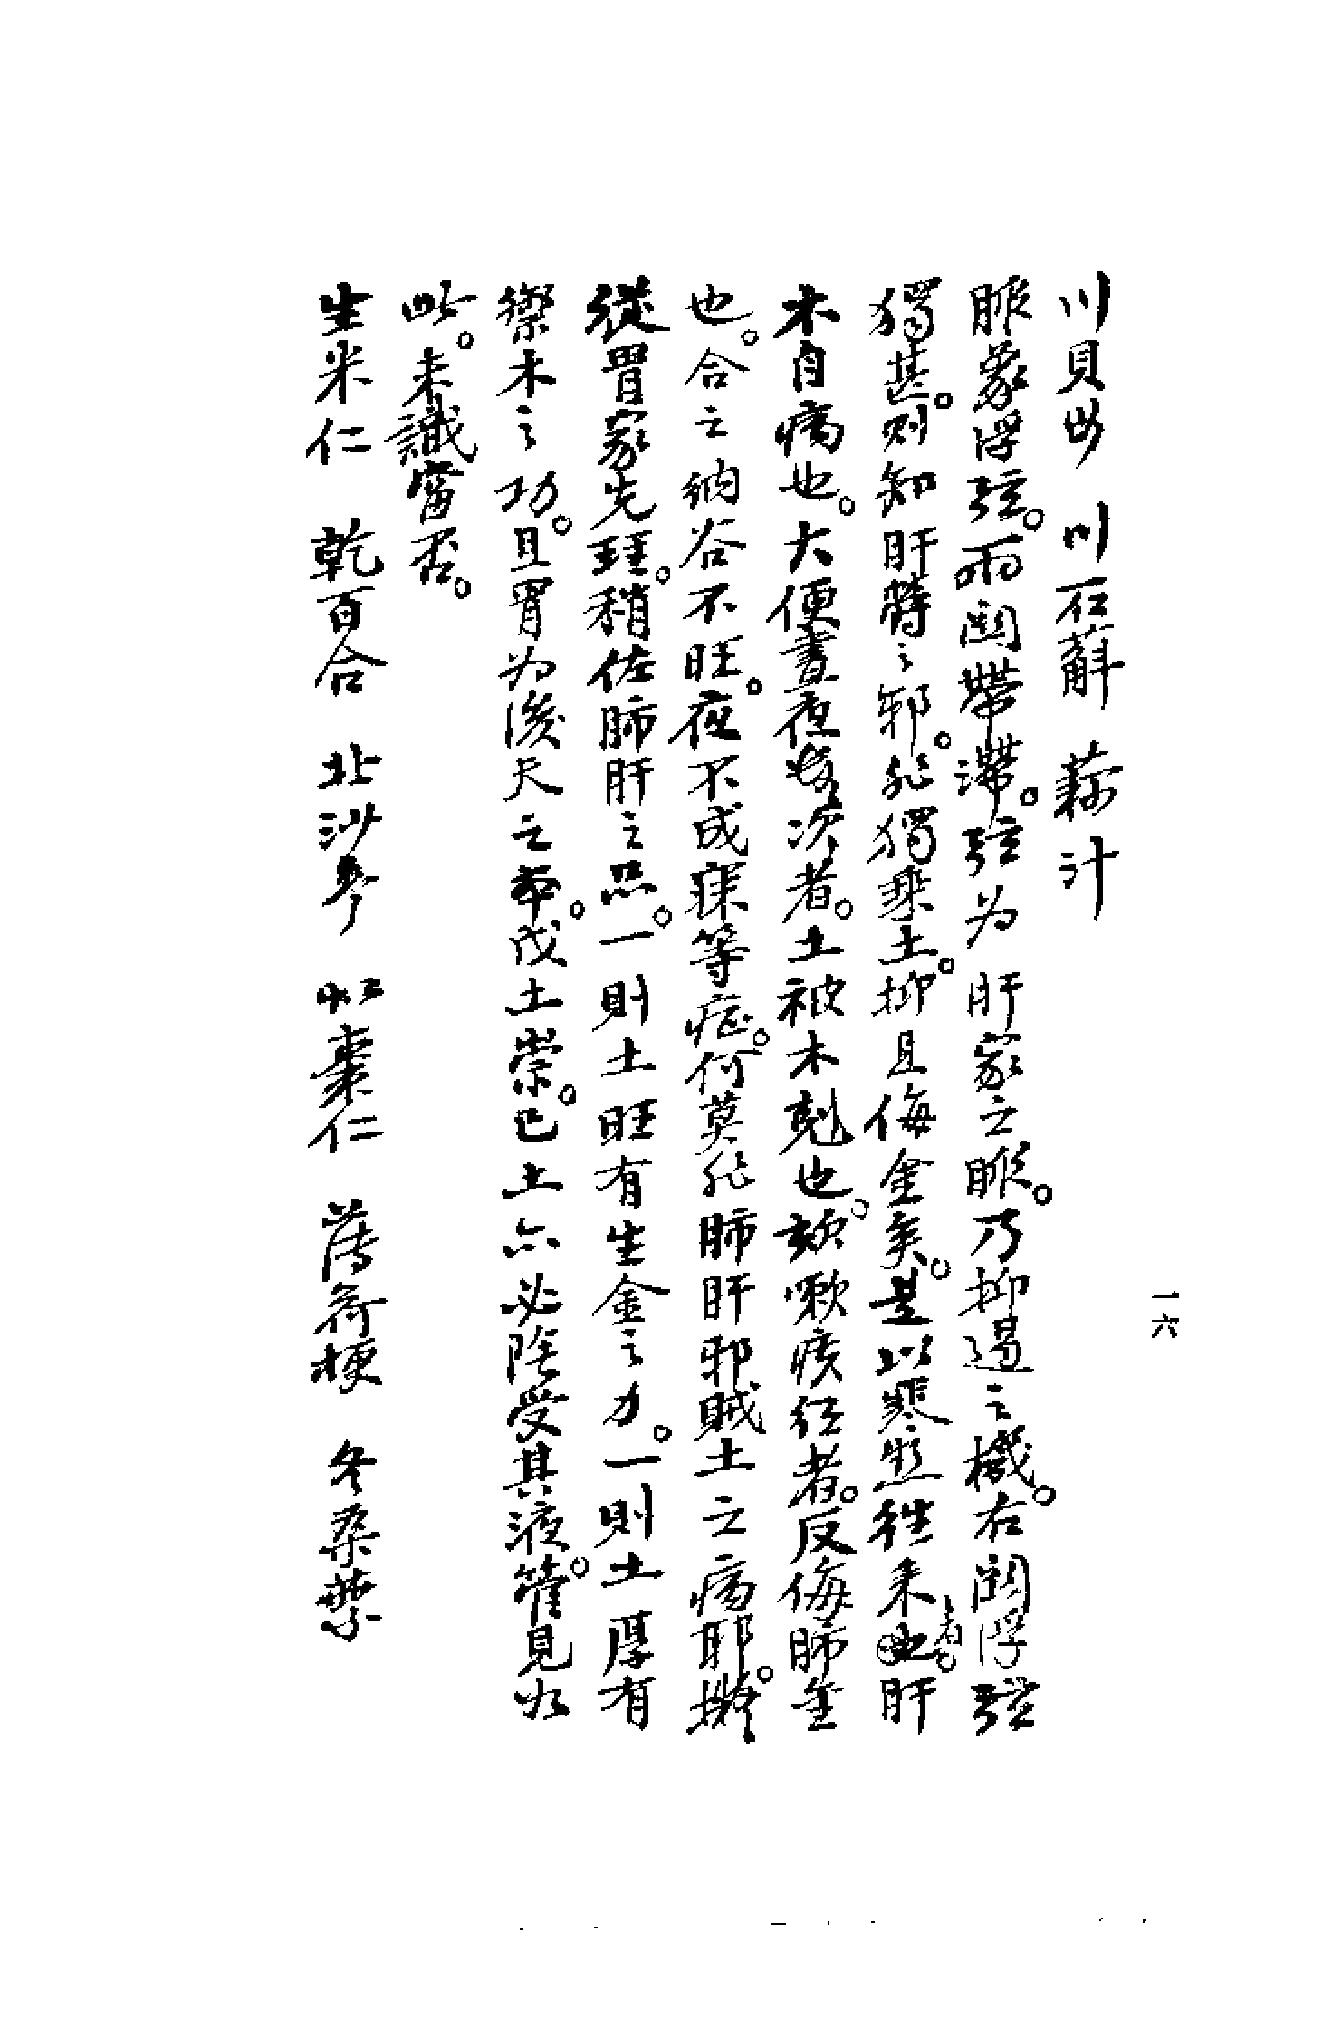 川貝母　川石斛　藕汁
脈象浮弦。兩關帶滯。弦為肝家之脈。乃抑遏之機。右關浮弦
獨甚。則知肝臟之邪。非獨乘土。抑且侮金矣。是以寒熱往來者。肝
木自病也。大便晝夜數次者。土被木剋也。欬嗽痰紅者。反侮肺金
也。合之納谷不旺。夜不成寐等症。何莫非肺肝邪賊土之病耶。擬
從胃家先理。稍佐肺肝之品。一則土旺有生金之力。一則土厚有
禦木之功。且胃為後天之本。戊土崇。己土亦必陰受其液。管見如
此。未識當否。
生米仁　乾百合　北沙參　棗仁　薄荷梗　冬桑葉
一六